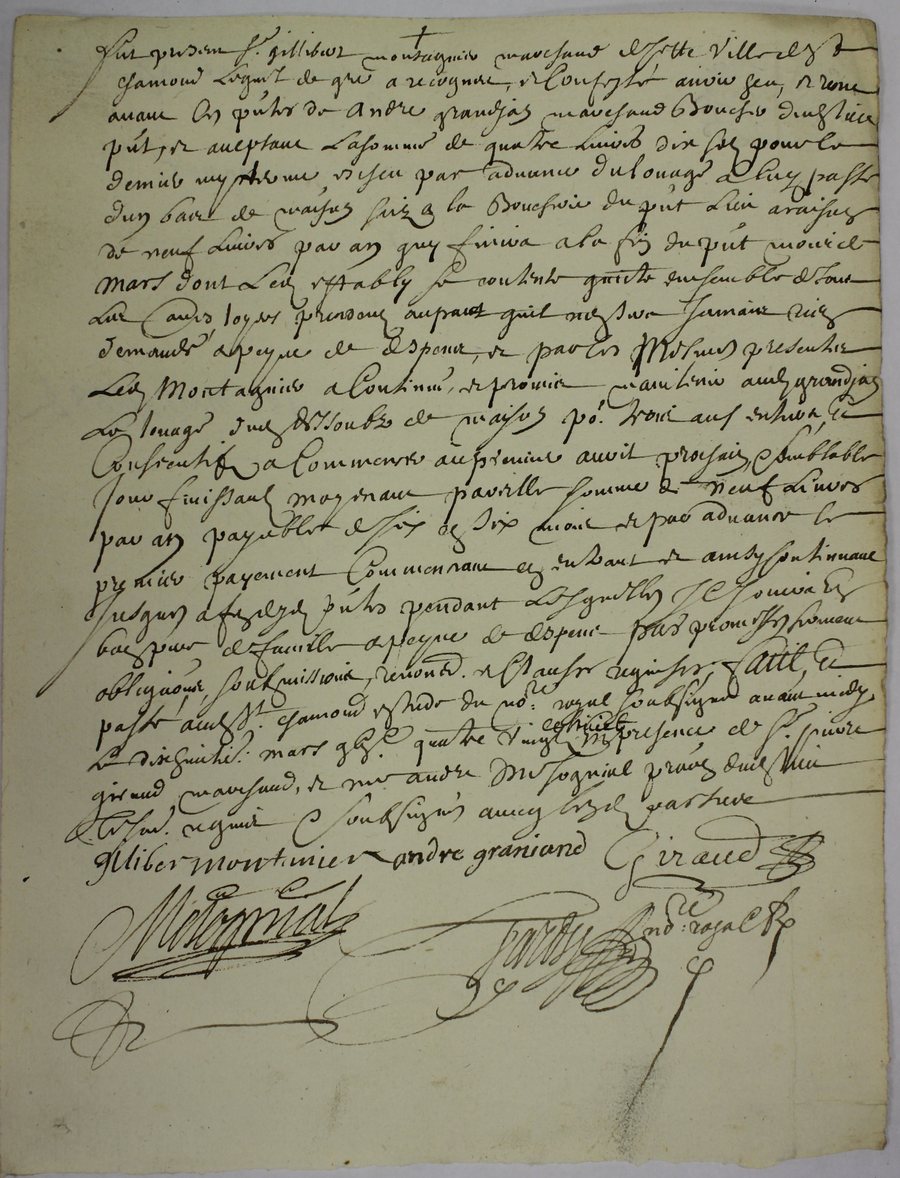 Fut present Sr gillibert montagnier marchand de cette ville de St
chamond Lequel de gré a recogneu, et Confessé avoir heu, et receu
avant les pntes de Andre grandjan marchand Boucher dud lieu
pnt, et acceptant La somme de quatre Livres dix solz pour le
dernier escheu par advance du louage a luy passé
d'un bas de maison size a la Boucherie du pnt Lieu a raison
de neuf Livres par an quy finira a la fin du pnt mois de
Mars dont Led estably se contente quicte ensemble de tous
Les loyers precedens au parat qu'il n'en sera Jamais rien
demandé a peyne de despens, et par ces Mesmes presentes
Led Montagnier a Continué, et promis maintenir aud grandjan
Le louage dud de maison po. trois ans entiers &
Consecutifz a Commencer au premier avril prochain semblable
Jour finissant moyenant pareille somme de neuf Livres
par an payable de six en six mois et par advance le
premier payement Commencant en entrant et ainsy Continuant
Jusques a fin desd pntes pendant Lesquelles Il Jouira en
bon pere de famille a peyne de despens par promesses serment
obligaōns, soubmissions, renonc. et Clauses requises, faict, &
passé aud St. chamond estude du nore. royal soubsigné avant midy
Le dix huictie. mars quatre vingt en presence de Sr.
giraud marchand, et me andre Mesognial praticien dud lieu
tesm. requis soubsignes avecq lesd parties
gilliber montanier andre graniand Giraud
Mesognial
nore. royal